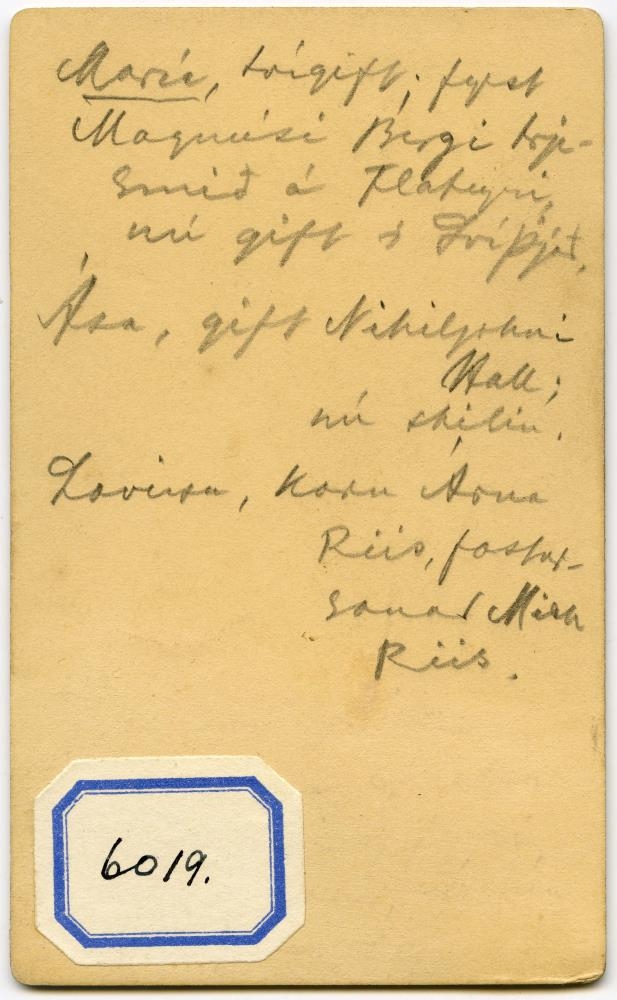 María, tvígift; fyrst
Magnúsi Bergi trje-
smið á Flateyri,
nú gift í Svíþjóð.
Ása, gift Nikuljohni
Hall;
nú skilin.
Lovísa, kona Árna
Riis, fóstur-
sonar Mich
Riis.
6019.